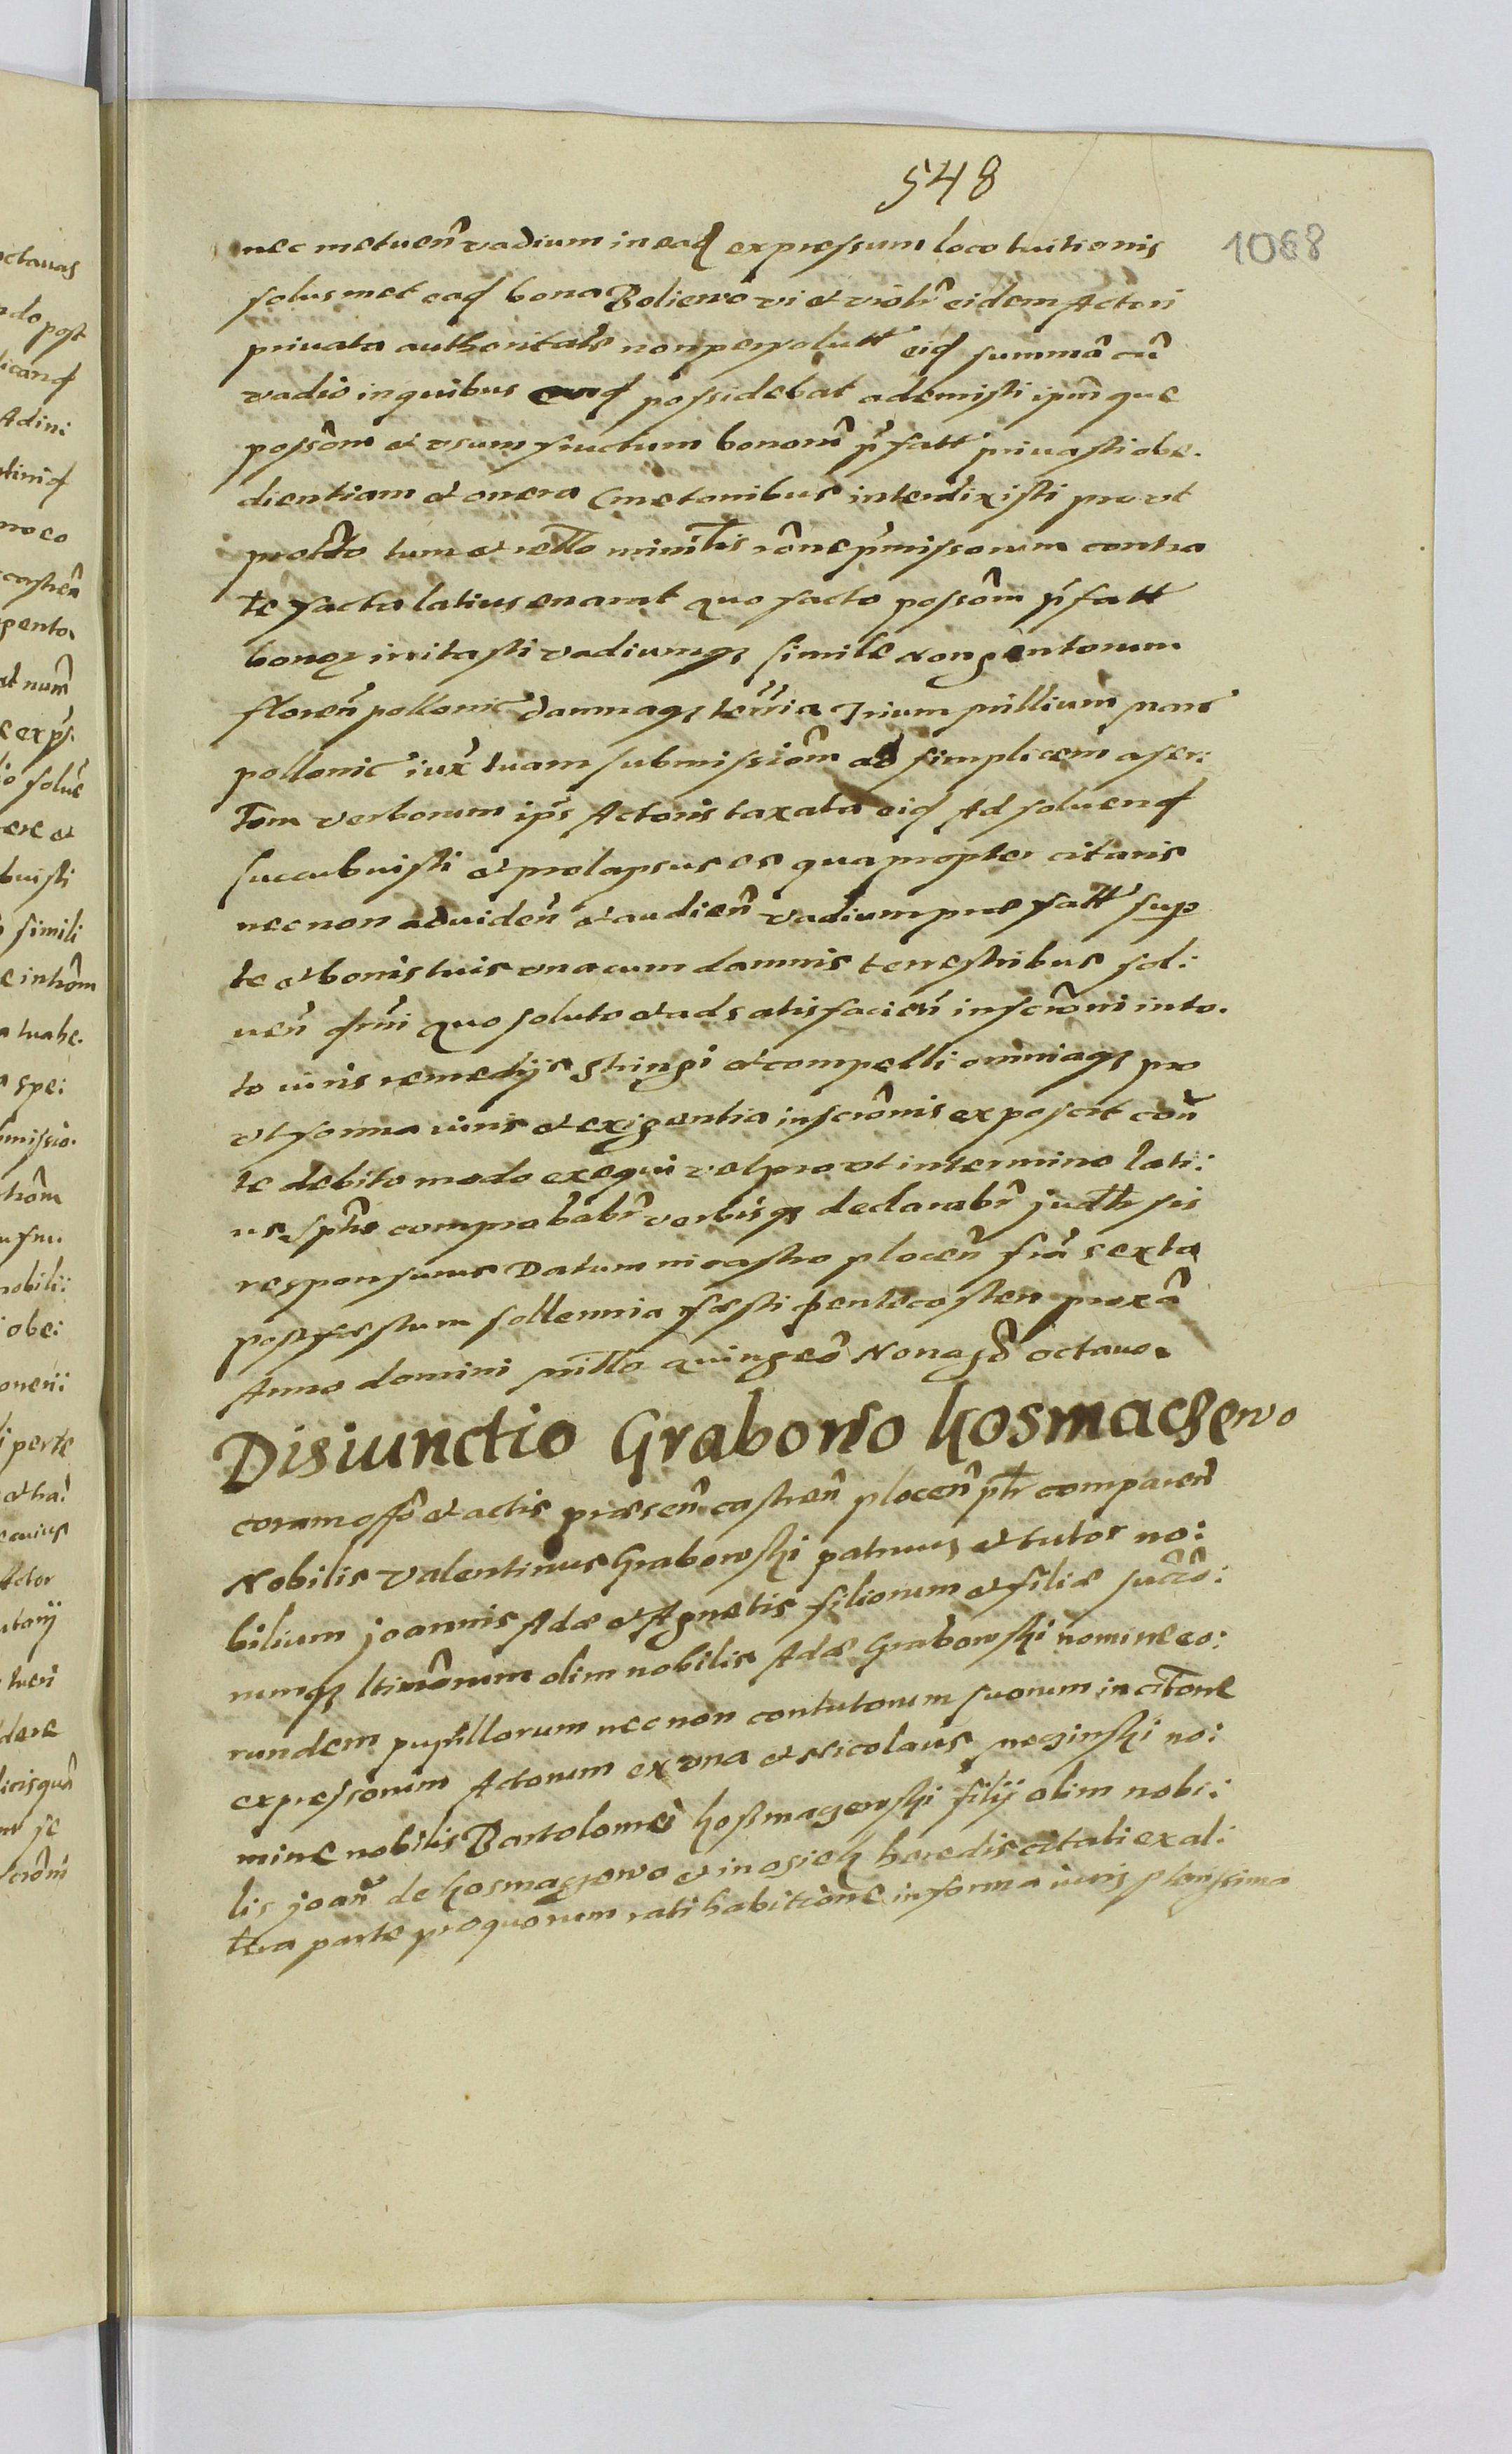 548
1068
nec metuen̄ vadium in ead expressum loco tuitionis
solusmet ead bona Boliewo vi et violr̄ eidem Actori
privata authoritate non persolutt eid summâ cū
vadio in quibus ead possidebat ademisti ipm̄ que
possôm et vsum fructum bonorū p̄fatt privasti obe.
dientiam et onera Cmetonibus interdixisti pro vt
protto tum et retto minitris rône p̄missorum contra
te facta latius enarrat quo facto possôm p̄fatt
bonorꝫ irritasti vadiumqꝫ simile nongentorum
floren̄ pollonic̄ damnaqꝫ terr̄ia Trium millium mar̄
pollonic̄ iux̄ tuam submissiôm ad simplicem aser:
Tom verborum ips̄ Actoris taxata eid Ad soluend
succubuisti et prolapsus es quapropter citaris
nec non ad viden̄ et audien̄ vadium prefatt sup
te et bonis tuis vna cum damnis terrestribus sol:
uen̄ drn̄i quo soluto et ad satisfacien̄ inscrôni in to.
to iuris remedijs stringi et compelli omniaqꝫ pro
vt forma iuris et exigentia inscrônis exposcit con̄
te debito modo exequi vel pro vt in termino lati:
us sptr̄e comprobabr̄ verbisqꝫ declarabr̄ judtr̄ sis
responsurus Datum in castro plocen̄ fr̄ia sexta
post festum sollennia festi pentecosten proxâ
Anno domini mitto quingeô Nonagô octauo.
Disiunctio Grabowo Kosmaczewo
coram offô et actis præsen̄ castren̄ plocen̄ ptr̄ comparen̄
Nobilis Valentinus Grabowski patruus et tutor no:
bilium Joannis Adæ et Agnetis filiorum et filiæ succô:
rumqꝫ ltimôrum olim nobilis Adæ Grabowski nomine eo:
rundem pupillorum nec non contutorum suorum in citône
expressorum Actorum ex vna et Nicolaus neginski no:
mine nobilis Bartolomei Kosmaczewski filij olim nobi:
lis joan̄ de Kosmaczewo et in osiek heredis citati ex al:
tera parte pro quorum ratihabitione in forma iuris plenissima